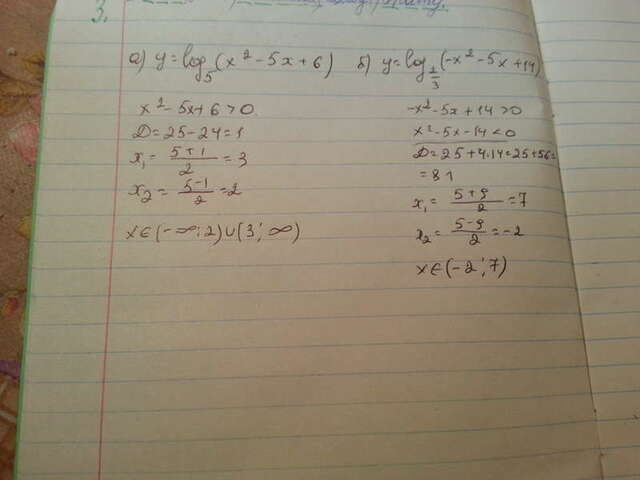 3.
а) y = log₅(x² - 5x + 6)
x² - 5x + 6 > 0
D = 25 - 24 = 1
x₁ = (5 + 1)/2 = 3
x₂ = (5 - 1)/2 = 2
x ∈ (-∞; 2) ∪ (3; ∞)
б) y = log_{1/3}(-x² - 5x + 14)
-x² - 5x + 14 > 0
x² - 5x - 14 < 0
D = 25 + 4·14 = 25 + 56 =
= 81
x₁ = (5 + 9)/2 = 7
x₂ = (5 - 9)/2 = -2
x ∈ (-2; 7)